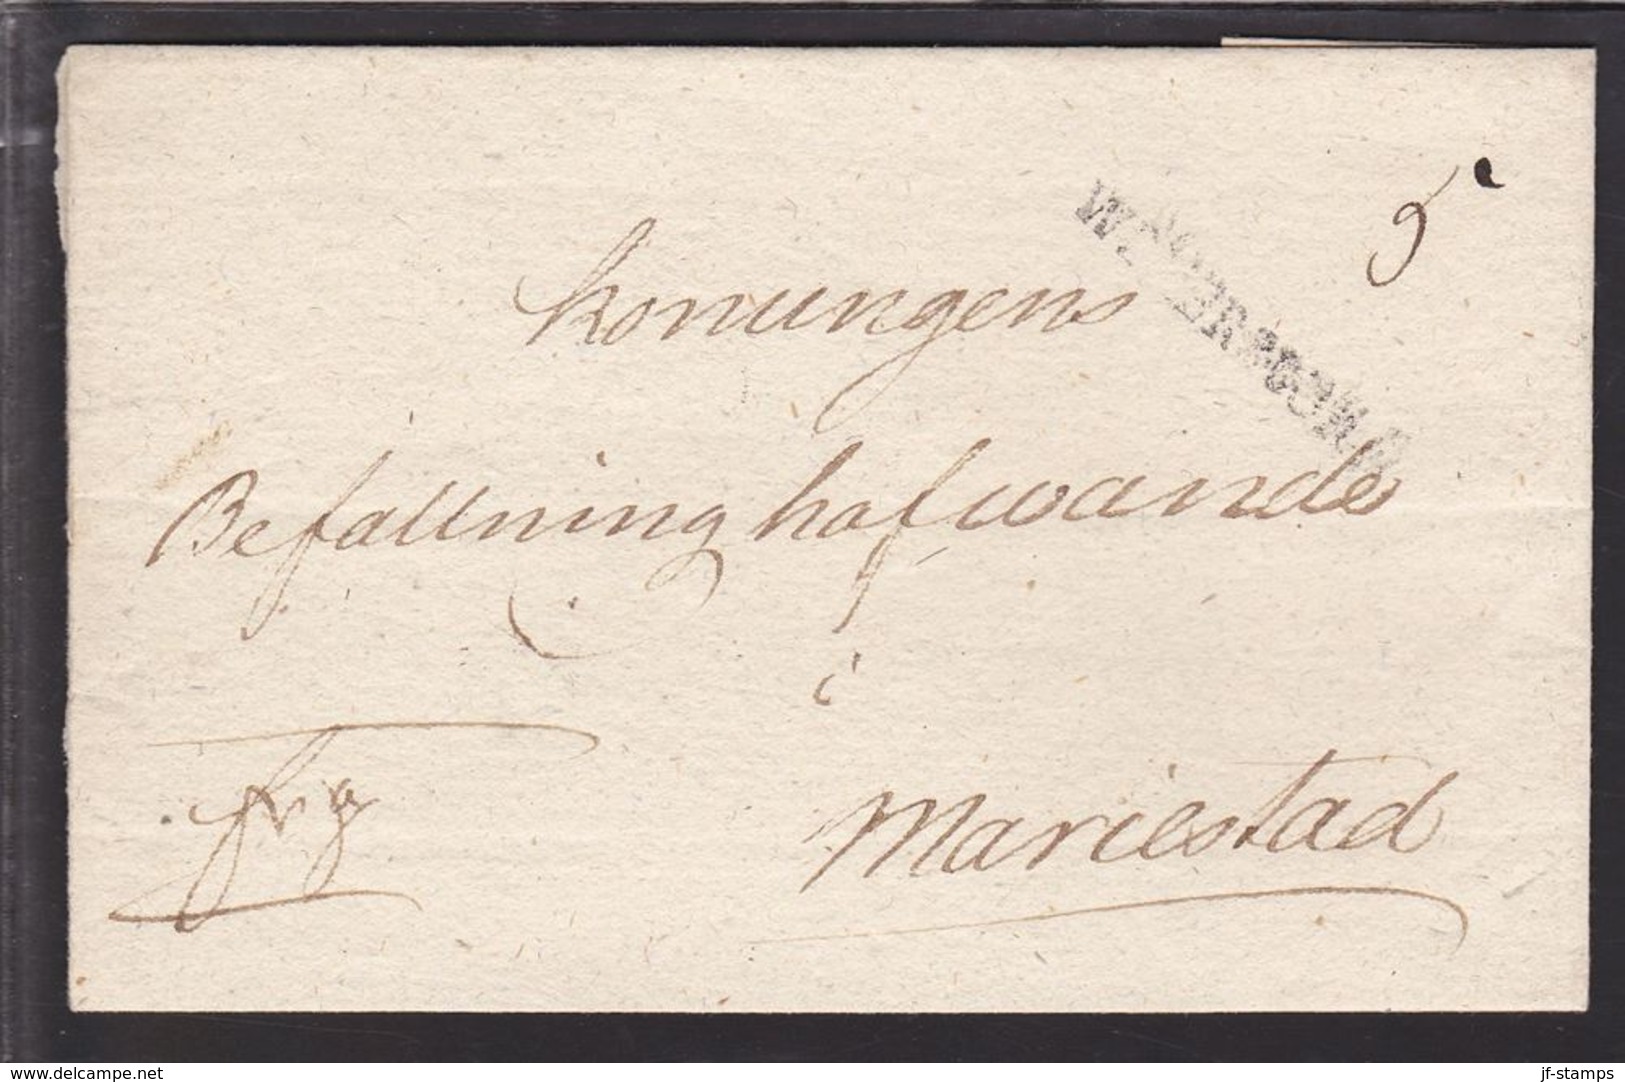 5
Konungens
Befallningshafwande
i
Mariestad
frg
www.delcampe.net
jf-stamps